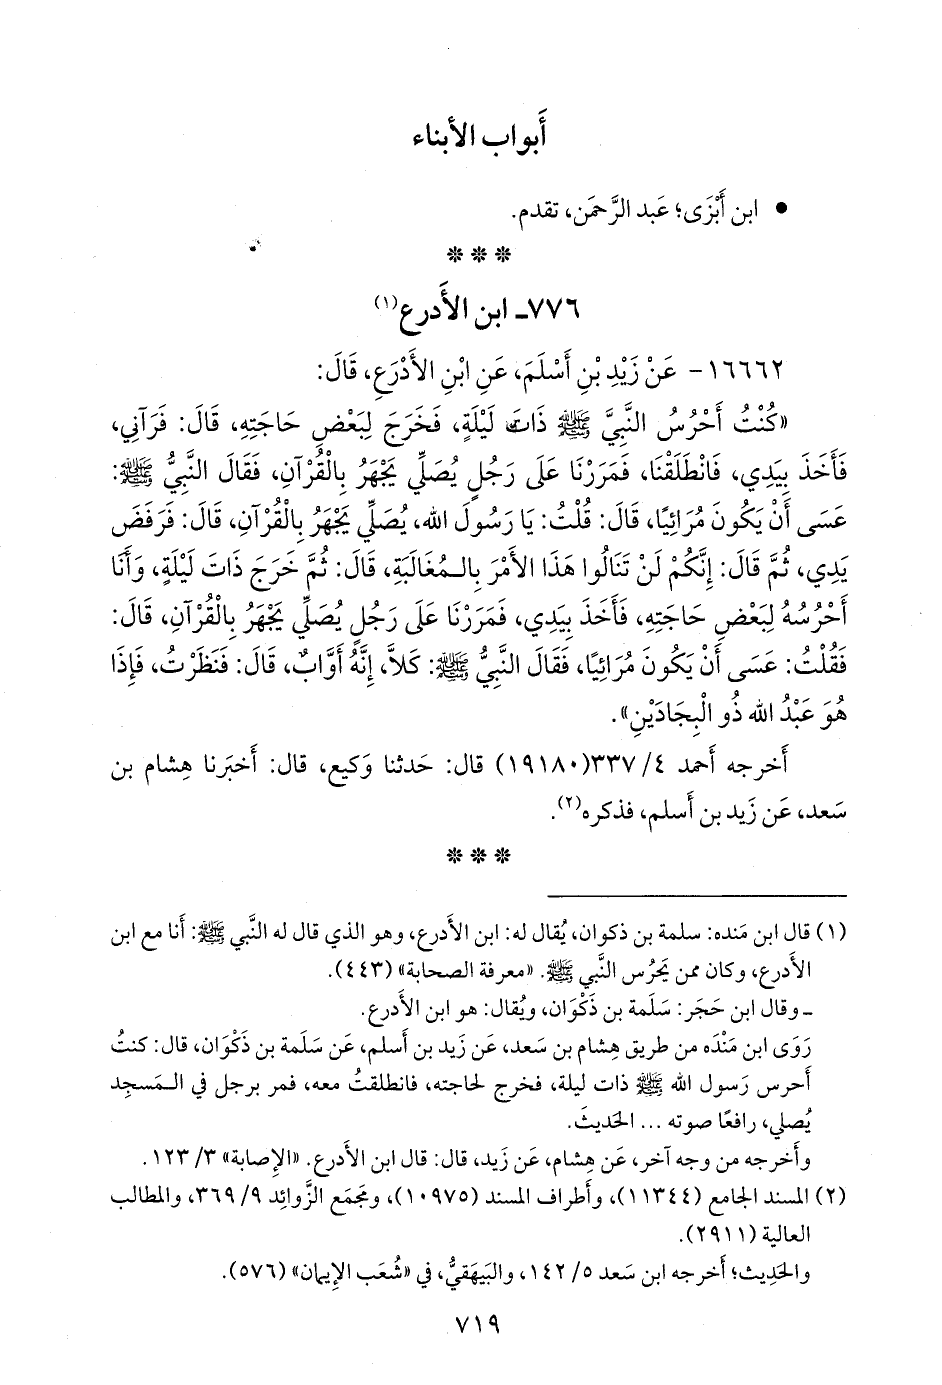 أَبواب الأبناء
• ابن أَبْزَى؛ عَبد الرَّحمَن، تقدم.
* * *
٧٧٦ـ ابن الأَدرع(١)
١٦٦٦٢- عَنْ زَيْدِ بْنِ أَسْلَمَ، عَنِ ابْنِ الأَدْرَعِ، قَالَ:
«كُنْتُ أَحْرُسُ النَّبِيَّ ﷺ ذَاتَ لَيْلَةٍ، فَخَرَجَ لِبَعْضِ حَاجَتِهِ، قَالَ: فَرَآنِي،
فَأَخَذَ بِيَدِي، فَانْطَلَقْنَا، فَمَرَرْنَا عَلَى رَجُلٍ يُصَلِّي يَجْهَرُ بِالْقُرْآنِ، فَقَالَ النَّبِيُّ ﷺ:
عَسَى أَنْ يَكُونَ مُرَائِيًا، قَالَ: قُلْتُ: يَا رَسُولَ الله، يُصَلِّي يَجْهَرُ بِالْقُرْآنِ، قَالَ: فَرَفَضَ
يَدِي، ثُمَّ قَالَ: إِنَّكُمْ لَنْ تَنَالُوا هَذَا الأَمْرَ بِالْمُغَالَبَةِ، قَالَ: ثُمَّ خَرَجَ ذَاتَ لَيْلَةٍ، وَأَنَا
أَحْرُسُهُ لِبَعْضِ حَاجَتِهِ، فَأَخَذَ بِيَدِي، فَمَرَرْنَا عَلَى رَجُلٍ يُصَلِّي يَجْهَرُ بِالْقُرْآنِ، قَالَ:
فَقُلْتُ: عَسَى أَنْ يَكُونَ مُرَائِيًا، فَقَالَ النَّبِيُّ ﷺ: كَلاَّ، إِنَّهُ أَوَّابٌ، قَالَ: فَنَظَرْتُ، فَإِذَا
هُوَ عَبْدُ الله ذُو الْبِجَادَيْنِ».
أَخرجه أَحمد ٤/ ٣٣٧(١٩١٨٠) قال: حَدثنا وَكيع، قال: أَخبَرنا هِشام بن
سَعد، عَن زَيد بن أَسلم، فذكره(٢).
* * *
(١) قال ابن مَنده: سلمة بن ذكوان، يُقال له: ابن الأَدرع، وهو الذي قال له النَّبي ﷺ: أَنا مع ابن
الأَدرع، وكان ممن يَحرُس النَّبي ﷺ. «معرفة الصحابة» (٤٤٣).
ـ وقال ابن حَجَر: سَلَمة بن ذَكْوَان، ويُقال: هو ابن الأَدرع.
رَوَى ابن مَنْدَه من طريق هِشام بن سَعد، عَن زَيد بن أَسلم، عَن سَلَمة بن ذَكْوَان، قال: كنتُ
أَحرس رَسول الله ﷺ ذات ليلة، فخرج لحاجته، فانطلقتُ معه، فمر برجل في المَسجِد
يُصلي، رافعًا صوته ... الحَديثَ.
وأَخرجه من وجه آخر، عَن هِشام، عَن زَيد، قال: قال ابن الأَدرع. «الإِصابة» ٣/ ١٢٣.
(٢) المسند الجامع (١١٣٤٤)، وأَطراف المسند (١٠٩٧٥)، ومَجمَع الزَّوائِد ٩/ ٣٦٩، والمطالب
العالية (٢٩١١).
والحَدِيث؛ أَخرجه ابن سَعد ٥/ ١٤٢، والبَيهَقيُّ، في «شُعَب الإِيمان» (٥٧٦).
٧١٩